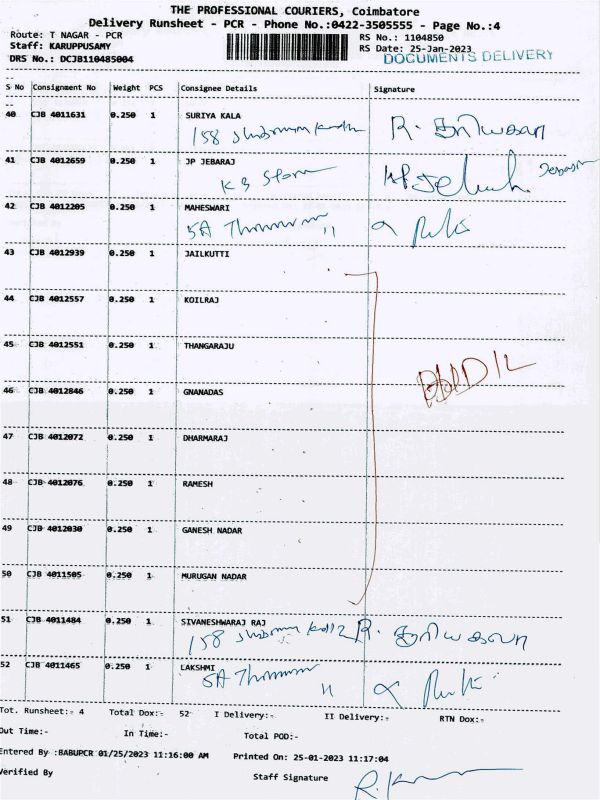 THE PROFESSIONAL COURIERS, Coimbatore
Delivery Runsheet - PCR - Phone No.:0422-3505555 - Page No.:4
Route: T NAGAR - PCR RS No.: 1104850
Staff: KARUPPUSAMY RS Date: 25-Jan-2023
DRS No.: DCJB110485004 DOCUMENTS DELIVERY
S No Consignment No Weight PCS Consignee Details Signature
40 CJB 4011631 0.250 1 SURIYA KALA
158
41 CJB 4012659 0.250 1 JP JEBARAJ
KB Store
42 CJB 4012205 0.250 1 MAHESWARI
5A
43 CJB 4012939 0.250 1 JAILKUTTI
44 CJB 4012557 0.250 1 KOILRAJ
45 CJB 4012551 0.250 1 THANGARAJU
46 CJB 4012846 0.250 1 GNANADAS
47 CJB 4012072 0.250 1 DHARMARAJ
48 CJB 4012076 0.250 1 RAMESH
49 CJB 4012030 0.250 1 GANESH NADAR
50 CJB 4011505 0.250 1 MURUGAN NADAR
51 CJB 4011484 0.250 1 SIVANESHWARAJ RAJ
158
52 CJB 4011465 0.250 1 LAKSHMI
5A
Tot. Runsheet:- 4 Total Dox:- 52 I Delivery:- II Delivery:- RTN Dox:-
Out Time:- In Time:- Total POD:-
Entered By :BABUPCR 01/25/2023 11:16:00 AM Printed On: 25-01-2023 11:17:04
Verified By Staff Signature